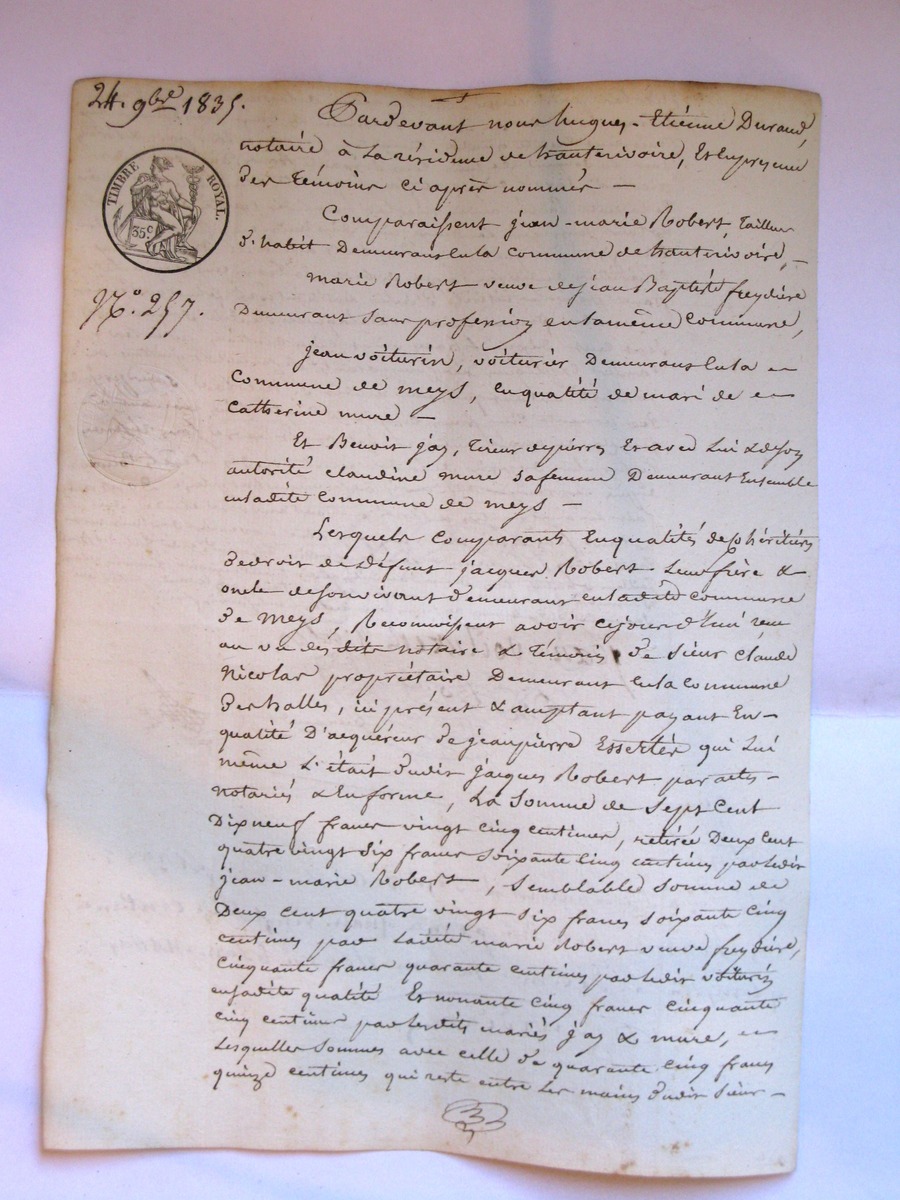 24. 9bre 1835.
TIMBRE ROYAL.
35c
No. 257.
Pardevant nous hugues-Etiénne Durand,
notaire à La résidence de hauterivoire, Et En présence
des témoins ci après nommés —
Comparaissent jean-marie Robert, tailleur
d'habit Demeurant En la commune de hauterivoire, —
marie Robert veuve de jean Baptiste freydière
Demeurant sans profession en la même commune,
jean voiturin, voiturier Demeurant En la —
commune de meys, En qualité de mari de —
Catherine mure —
Et Benoit jay, tireur de pierres Et avec Lui & de son
autorité claudine mure sa femme Demeurant Ensemble
en ladite commune de meys —
Lesquels comparants En qualités de cohéritiers
de droit de défunt jacques Robert Leur frère &
oncle de son vivant demeurant en ladite commune
de meys, Reconnoissent avoir cejourd'hui reçu
au vu desdits notaire & témoins de sieur claude
Nicolas propriétaire Demeurant En la commune
des halles, ici présent & acceptant payant En-
qualité D'acquéreur de jean pierre Essertel qui Lui
même L'était dudit jacques Robert par actes-
notariés & En forme, La somme de sept cent
Dix neuf francs vingt cinq centimes, retirée Deux cent
quatre vingt six francs soixante cinq centimes par ledit
jean-marie Robert, semblable somme de
Deux cent quatre vingt six francs soixante cinq
centimes par Ladite marie Robert veuve freydière,
cinquante francs quarante centimes par ledit voiturin
en sadite qualité Et nonante cinq francs cinquante
cinq centimes par Lesdits mariés jay & mure, —
Lesquelles sommes avec celle de quarante cinq francs
quinze centimes qui reste entre Les mains dudit sieur —